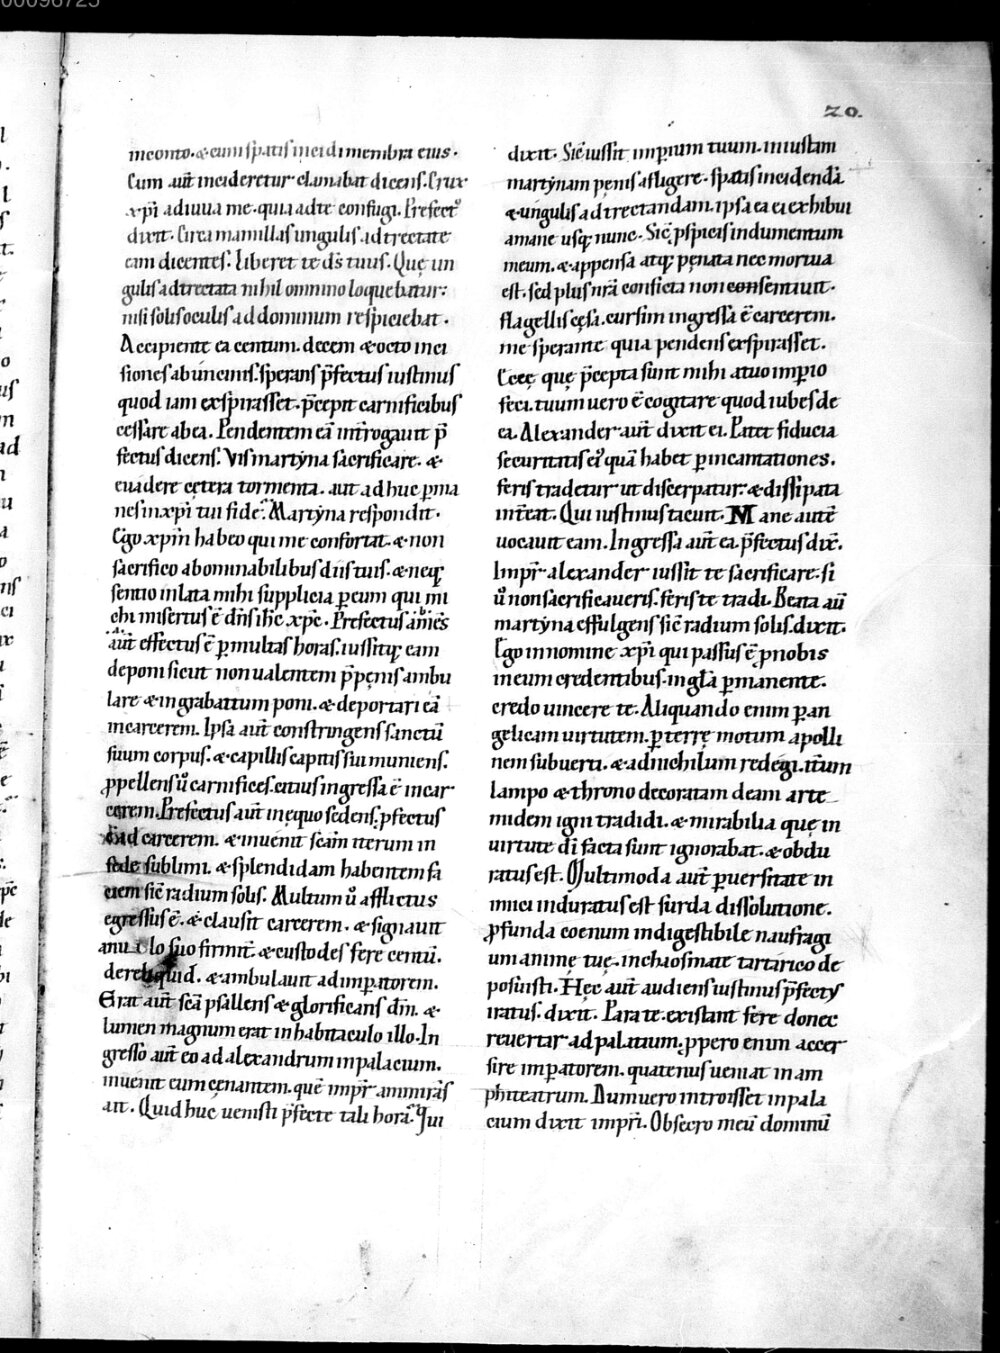 20.
in conto. & cum spatis incidi membra eius.
Cum aut̄ incideretur clamabat dicens. Crux
xp̄i adiuua me. quia ad te confugi. Prefect᷒
dixit. Circa mamillas ungulis adtrectate
eam dicentes. Liberet te ds̄ tuus. Quę un
gulis adtrectata nihil omnino loquebatur:
nisi solis oculis ad dominum respiciebat.
Accipiente ea centum. decem & octo inci
siones ab uncinis. sperans p̄fectus iustinus
quod iam exspirasset. p̄cepit carnificibus
cessare ab ea. Pendentem eā int̄rogauit p̄
fectus dicens. Vis martyna sacrificare. &
euadere cętera tormenta. aut adhuc ꝑma
nes in xp̄i tui fide. Martyna respondit.
Ego xp̄m habeo qui me confortat. & non
sacrifico abominabilibus diis tuis. & neqꝫ
sentio inlata mihi supplicia ꝑ eum qui mi
chi misertus ē dn̄s ihc̄ xp̄c. Prefectus am̄ēs
aut̄ effectus ē ꝑ multas horas. iussitqꝫ eam
deponi sicut non ualentem p̄ pęnis ambu
lare & in grabattum poni. & deportari eā
in carcerem. Ipsa aut̄ constringens sanctū
suum corpus. & capillis capitis sui muniens.
ꝓpellens ū carnifices. citius ingressa ē in car
cerem. Prefectus aut̄ in ęquo sedens. ꝓfectus
ē ad carcerem. & inuenit scam̄ iterum in
sede sublimi. & splendidam habentem fa
ciem sic̄ radium solis. Multum ū afflictus
egressus ē. & clausit carcerem. & signauit
anulo suo firmit̄. & custodes fere centū.
dereliquid. & ambulauit ad imꝑatorem.
Erat aut̄ scā psallens & glorificans dm̄. &
lumen magnum erat in habitaculo illo. In
gresso aut̄ eo ad alexandrum in palacium.
inuenit eum cęnantem. quē impr̄ ammirās
ait. Quid huc uenisti p̄fecte tali hora. Qui
dixit. Sic̄ iussit imꝑium tuum. iniustam
martynam pęnis afligere. spatis incidendā
& ungulis adtrectandam. ipsa ea ei exhibui
a mane usqꝫ nunc. Sic̄ ꝑspicis indumentum
meum. & appensa atqꝫ pęnata nec mortua
est. sed plus nr̄a conficta non consentiuit.
flagellis cęsa. cursim ingressa ē carcerem.
me sperante quia pendens exspirasset.
Ecce quę p̄cepta sunt mihi a tuo imꝑio
feci. tuum uero ē cogitare quod iubes de
ea. Alexander aut̄ dixit ei. Patet fiducia
securitatis ei᷒ quā habet ꝑ incantationes.
feris tradetur ut discerpatur. & dissipata
int̄eat. Qui iustinus tacuit. Mane autē
uocauit eam. Ingressa aut̄ ea. p̄fectus dix̄.
Impr̄ alexander iussit te sacrificare. si
ū non sacrificaueris. feris te tradi. Beata aū
martyna effulgens sic̄ radium solis. dixit.
Ego in nomine xp̄i qui passus ē ꝓ nobis
in eum credentibus. in gl̄a ꝑmanente.
credo uincere te. Aliquando enim ꝑ an
gelicam uirtutem. ꝑ terrę motum apolli
nem subuerti. & ad nichilum redegi. it̄um
lampo & throno decoratam deam arte
midem igni tradidi. & mirabilia quę in
uirtute dī facta sunt ignorabat. & obdu
ratus est. Multimoda aut̄ ꝑuersitate in
imici induratus est surda dissolutione.
ꝓfunda coenum indigestibile naufragi
um animę tuę. in chaos mate tartarico de
posuisti. Hęc aut̄ audiens iustinus p̄fectꝰ
iratus. dixit. Parate. existant fere donec
reuertar ad palatium. ꝓpero enim accer
sire imꝑatorem. quatenus ueniat in am
phiteatrum. Dum uero introisset in pala
cium dixit impr̄i. Obsecro meū dominū